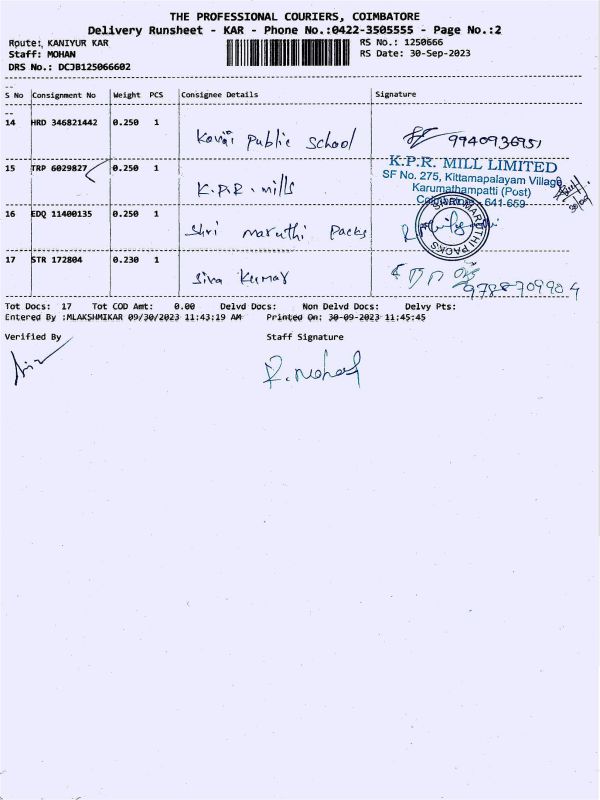 THE PROFESSIONAL COURIERS, COIMBATORE
Delivery Runsheet - KAR - Phone No.:0422-3505555 - Page No.:2
Route: KANIYUR KAR RS No.: 1250666
Staff: MOHAN RS Date: 30-Sep-2023
DRS No.: DCJB125066602
S No Consignment No Weight PCS Consignee Details Signature
14 HRD 346821442 0.250 1 Kovai Public School 9940936951
15 TRP 6029827 0.250 1 K.P.R. mills
K.P.R. MILL LIMITED
SF No. 275, Kittamapalayam Village
Karumathampatti (Post)
Coimbatore - 641 659
16 EDQ 11400135 0.250 1 Shri maruthi Packs
SHRI MARUTHI PACKS
17 STR 172804 0.230 1 Siva Kumar 9788709904
Tot Docs: 17 Tot COD Amt: 0.00 Delvd Docs: Non Delvd Docs: Delvy Pts:
Entered By :MLAKSHMIKAR 09/30/2023 11:43:19 AM Printed On: 30-09-2023 11:45:45
Verified By Staff Signature
R. Mohan